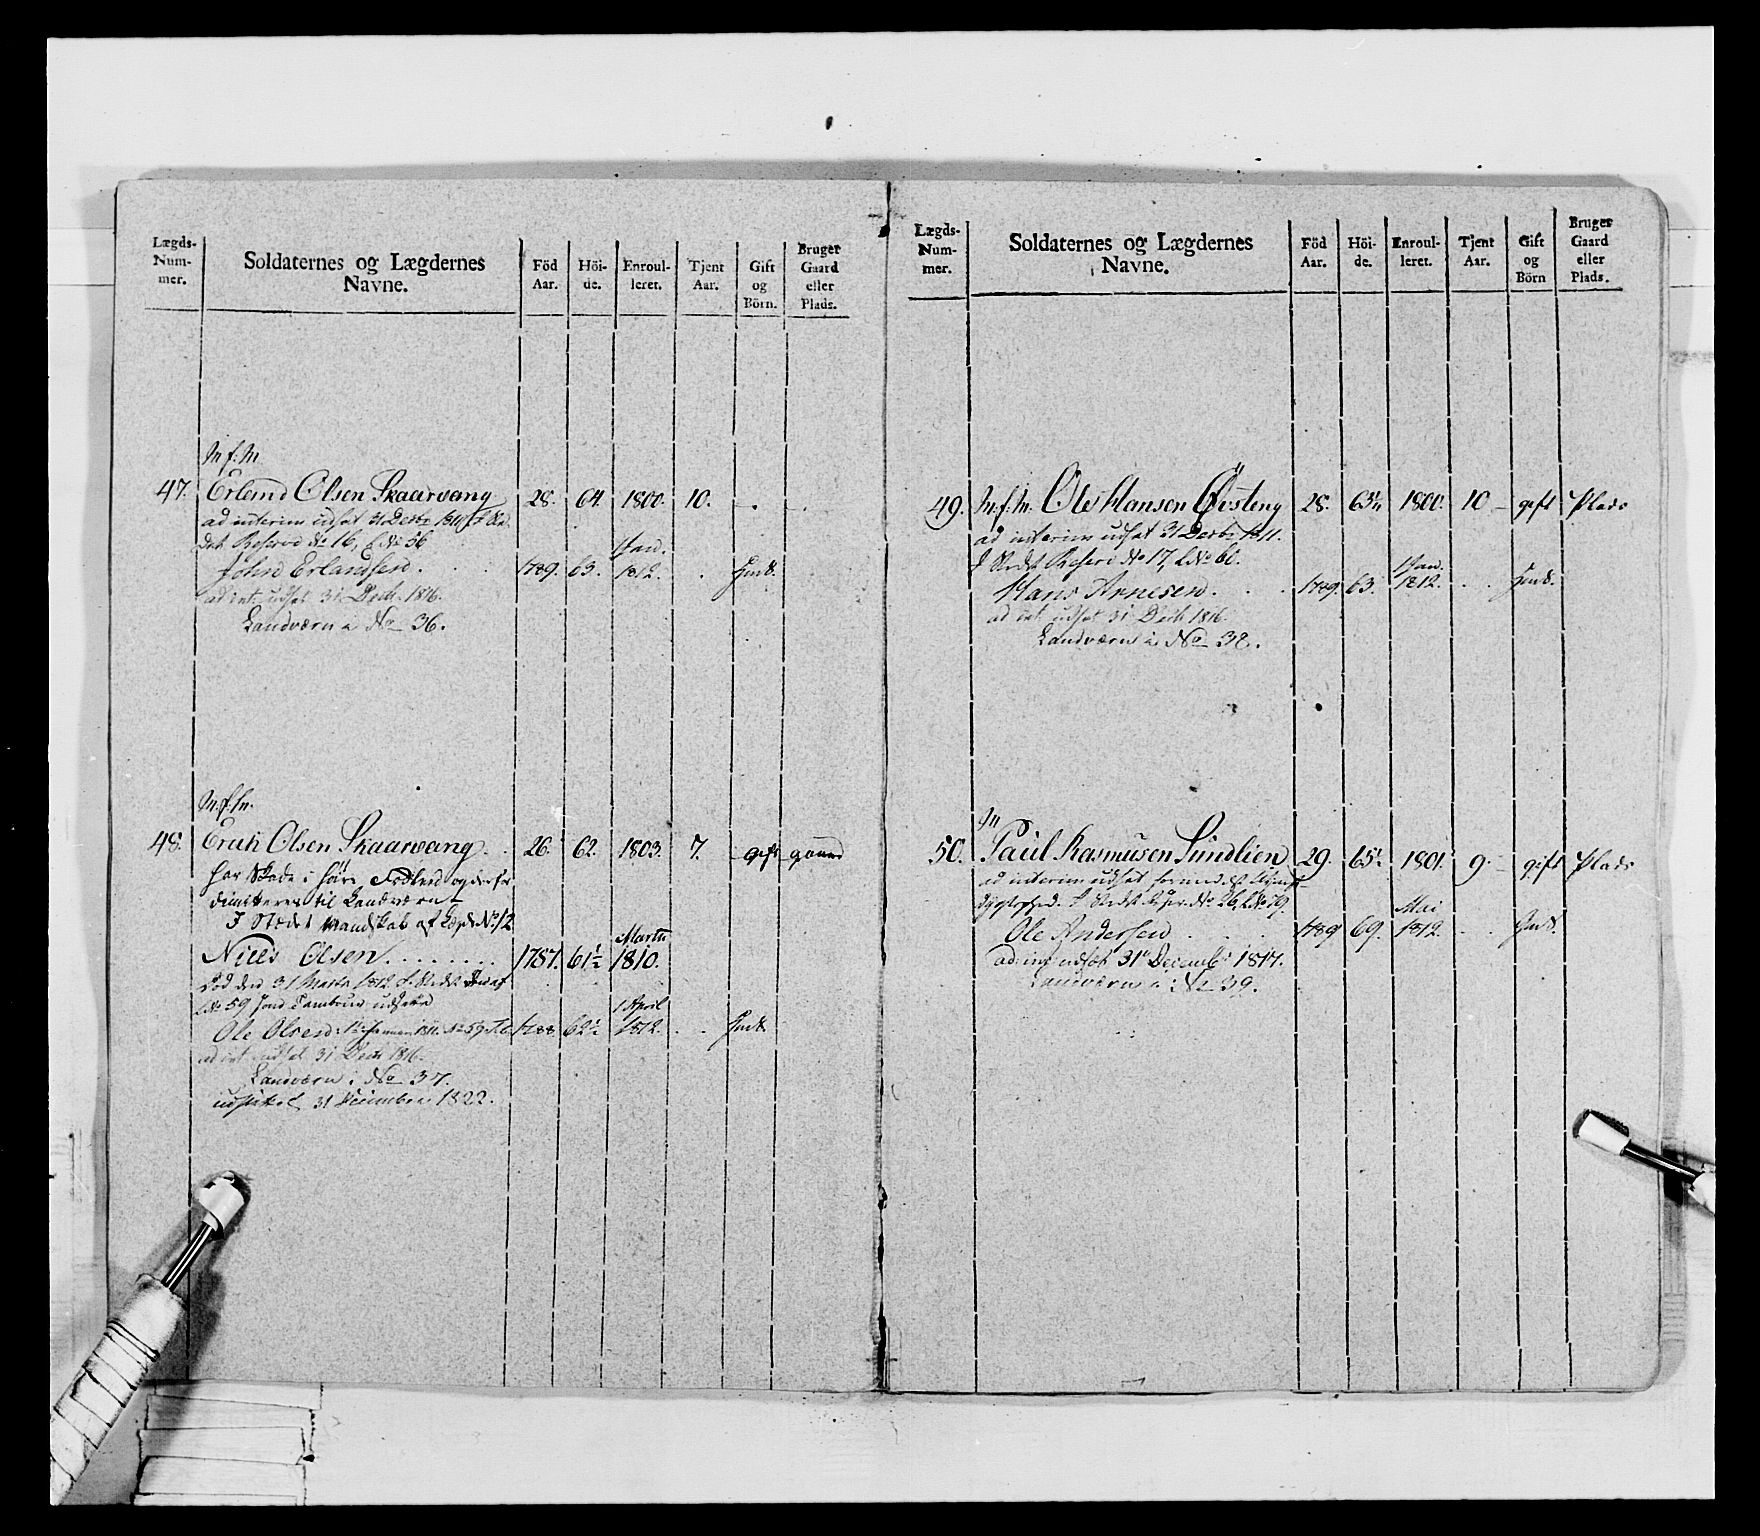 Lægds-
Num-
mer.
Soldaternes og Lægdernes
Navne.
Föd
Aar.
Höi-
de.
Enroul-
leret.
Tjent
Aar.
Gift
og
Börn.
Bruger
Gaard
eller
Plads.
M.f.M.
47. Erlend Olsen Skaarvang 28. 64. 1800. 10. - . -
ad interim udsat 31 Decbr 1811. I Ste-
det Reserve No 16, LNo 56
John Erlandsen . 1789. 63. 1 Jan. 1812. .
ad int. udsat 31 Decbr. 1816.
Landværn i No 36.
M.f.M.
48. Erich Olsen Skaarvang . . 26. 62. 1803. 7. gift gaard
har Skade i höire Fodled og derfor
dimitteres til Landværnet
I Stædet Mandskab af Lægd No 12
Niels Olsen . . . . . . . 1787. 61½ Martii 1810.
död den 31 Marti 1812 I Stedet
LNo 59
Ole Olsen 1788 62½ 1 April 1812. . .
ad int. udsat 31 Decbr 1816.
Landværn i No 37.
31 December 1822.
Lægds-
Num-
mer.
Soldaternes og Lægdernes
Navne.
Föd
Aar.
Höi-
de.
Enroul-
leret.
Tjent
Aar.
Gift
og
Börn
Bruger
Gaard
eller
Plads.
49. M.f.M. Ole Hansen Öysteng 28. 63½ 1800. 10 - gift Plads
ad interim udsat 31 Decbr 1811.
I Stedet Reserve No 17, LNo 60.
Hans Arnesen . . . 1789. 63. 1 Jan. 1812. . .
ad int. udsat 31 Decbr 1816.
Landværn i No 38.
50. Paul Rasmusen Sundlien 29. 65½ 1801. 9. - gift Plads
ad interim udsat formedelst
I Stedet Reserve No 26, LNo 79.
Ole Andersen . . . 1789 69. Mai 1812. . .
ad int udsat 31 Decembr 1817.
Landværn i No 39.